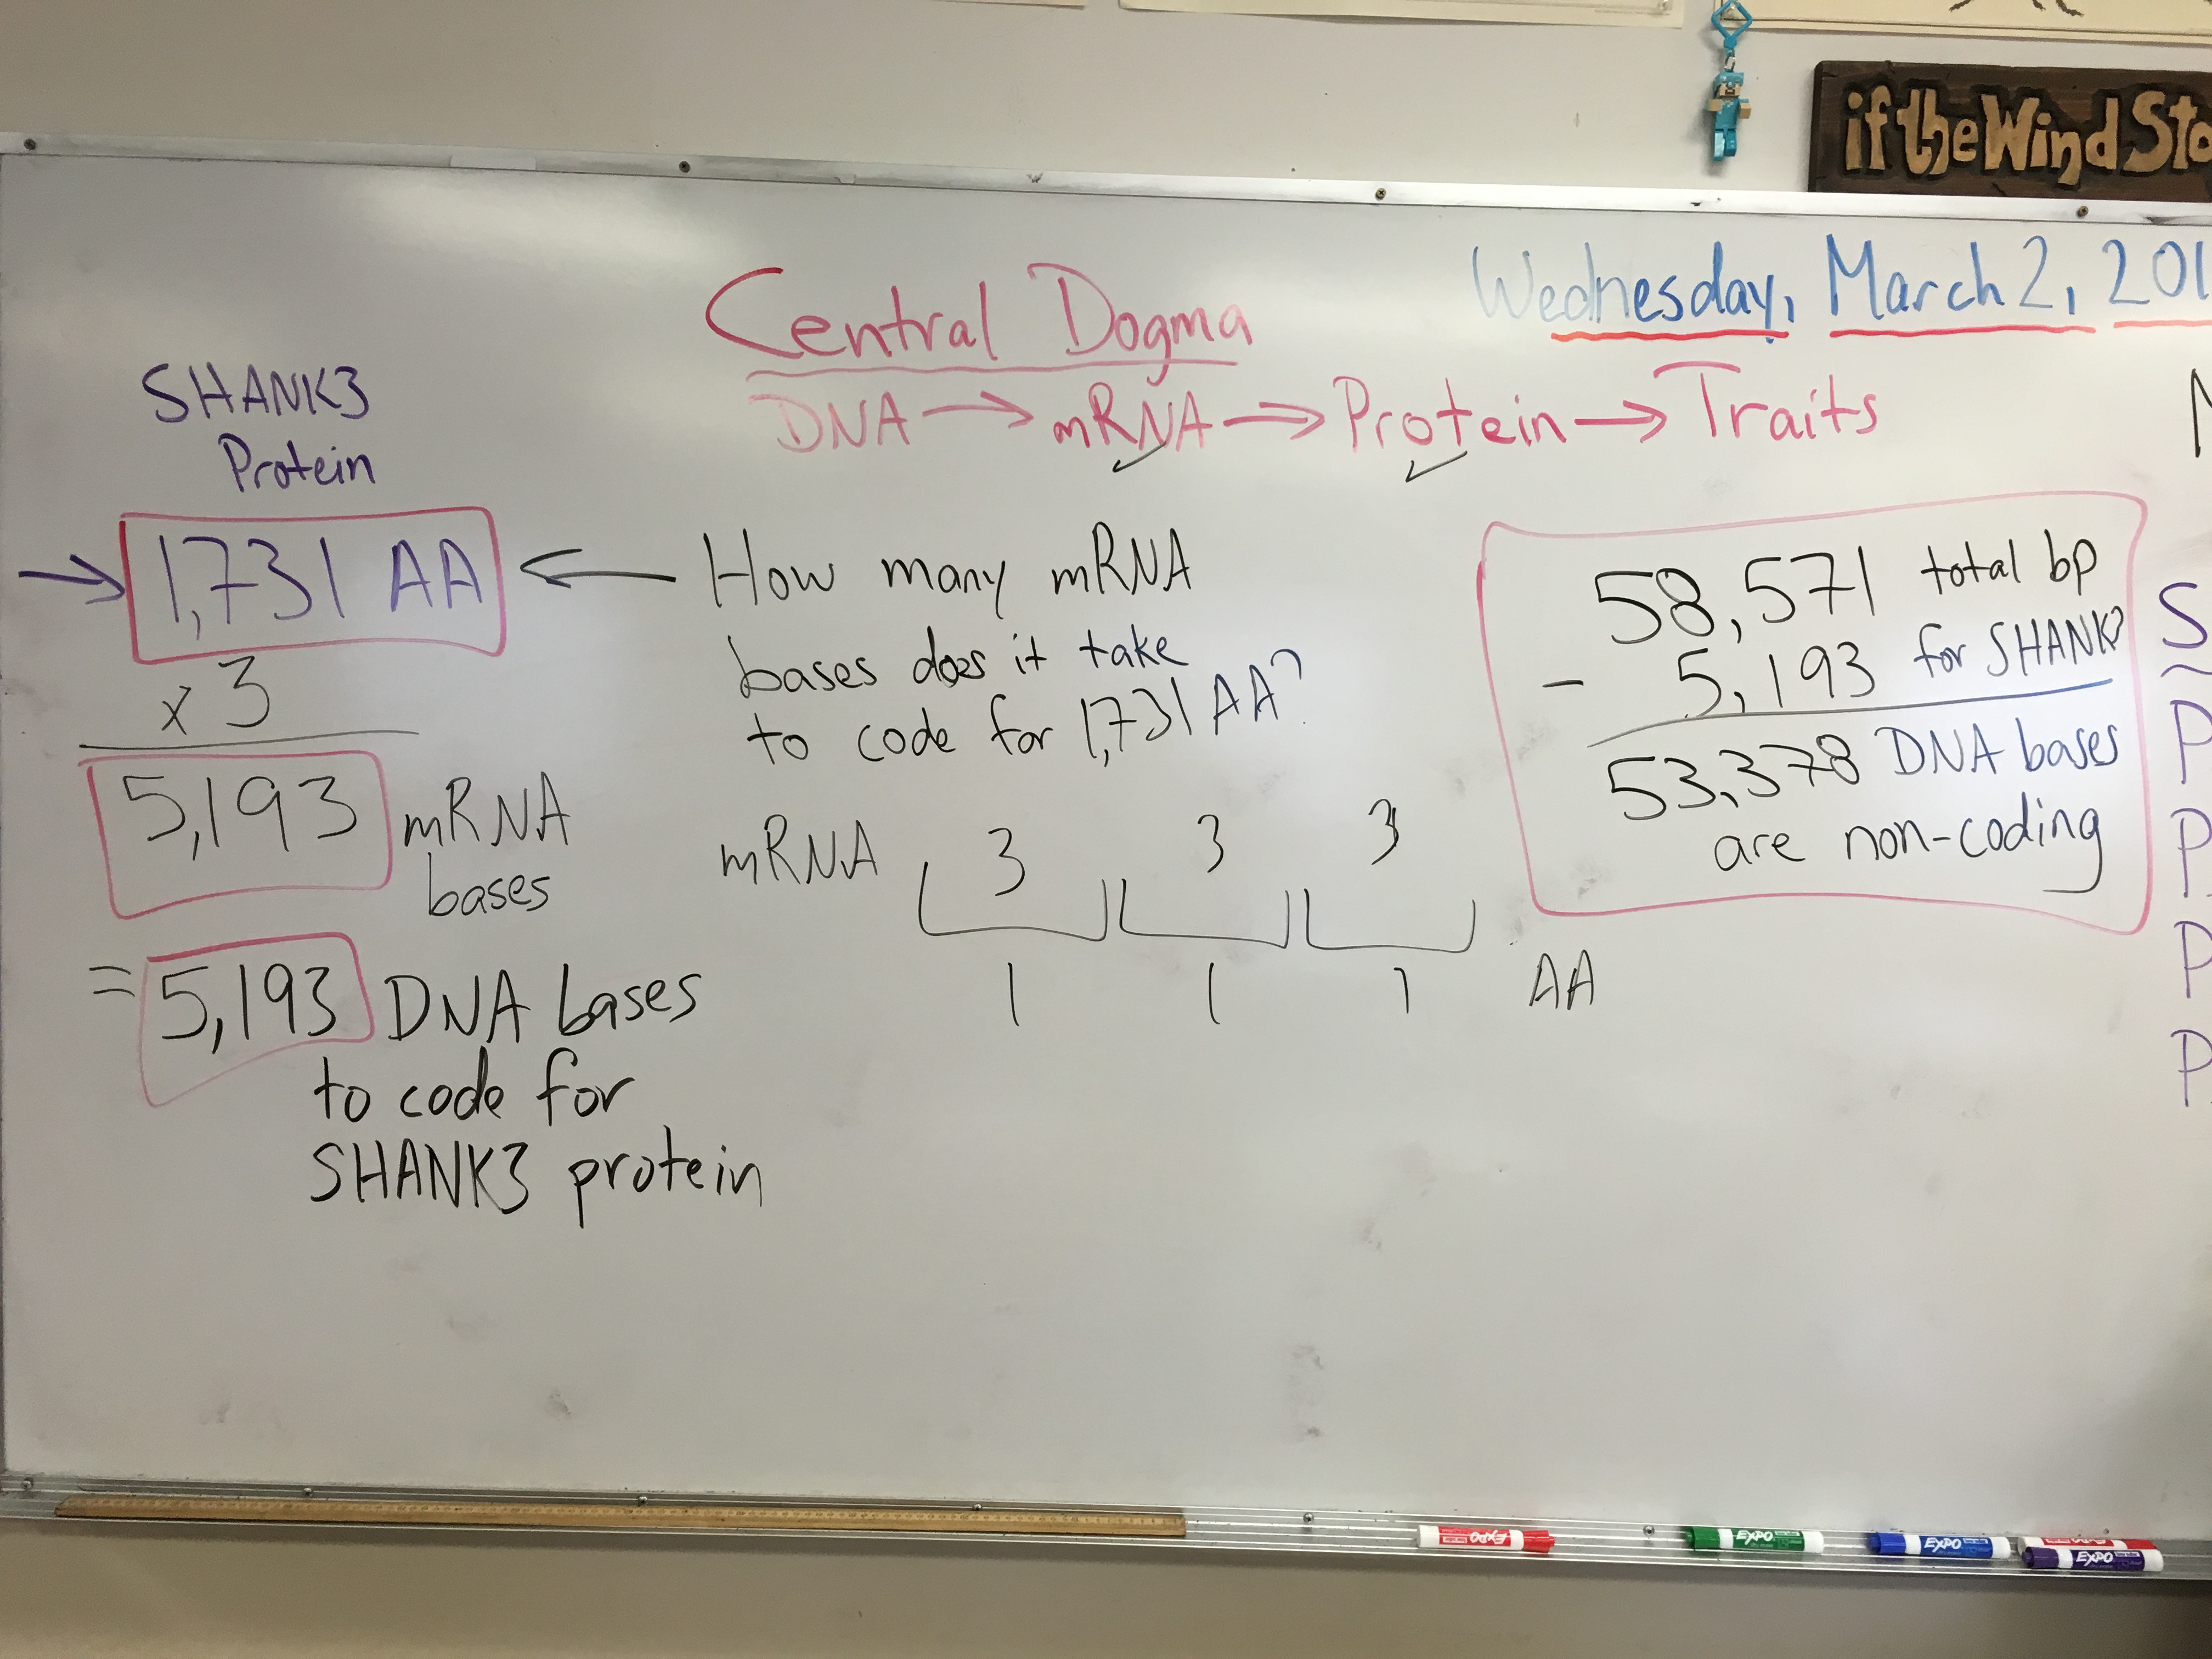 if the Wind Sto
Wednesday, March 2, 201
Central Dogma
DNA → mRNA → Protein → Traits
SHANK3
Protein
→ 1,731 AA ←
x 3
5,193 mRNA
bases
= 5,193 DNA bases
to code for
SHANK3 protein
How many mRNA
bases does it take
to code for 1,731 AA?
mRNA 3 3 3
1 1 1 AA
58,571 total bp
- 5,193 for SHANK3
53,378 DNA bases
are non-coding
S
P
P
P
P
EXPO
EXPO
EXPO
EXPO